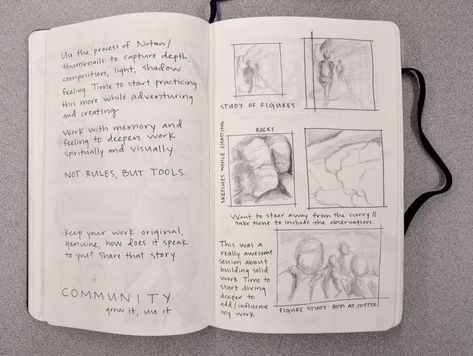 Use the process of Notan/
thumbnails to capture depth,
composition, light, shadow
feeling. Time to start practicing
this more while adventuring
and creating.
Work with memory and
feeling to deepen work
spiritually and visually.
NOT RULES, BUT TOOLS.
Keep your work original,
genuine, how does it speak
to you? Share that story.
COMMUNITY
grow it, use it
STUDY OF FIGURES
SKETCHES WHILE CHATTING
ROCKS
Want to steer away from the curvy //
take time to include the observation.
This was a
really awesome
session about
building solid
work. Time to
start diving
deeper to
add/influence
my work.
FIGURE STUDY: BOYS AT COPPER